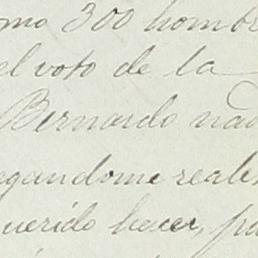 mo 300 hombr
el voto de la
Bernardo nad
egandome reale
uerido hacer, pa